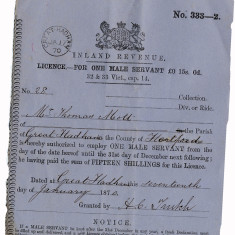 No. 333—2.
INLAND REVENUE.
LICENCE.—FOR ONE MALE SERVANT £0 15s. 0d.
32 & 33 Vict., cap. 14.
No 28
Collection.
Div. or Ride.
Mr Thomas Mott
in the Parish
of Great Hadham in the County of Hertford
is hereby authorized to employ ONE MALE SERVANT from the
date of the date hereof until the 31st day of December next following; he
having paid the sum of FIFTEEN SHILLINGS for this Licence.
Dated at Great Hadham seventeenth
day of January 1870
Granted by
NOTICE.
If a MALE SERVANT